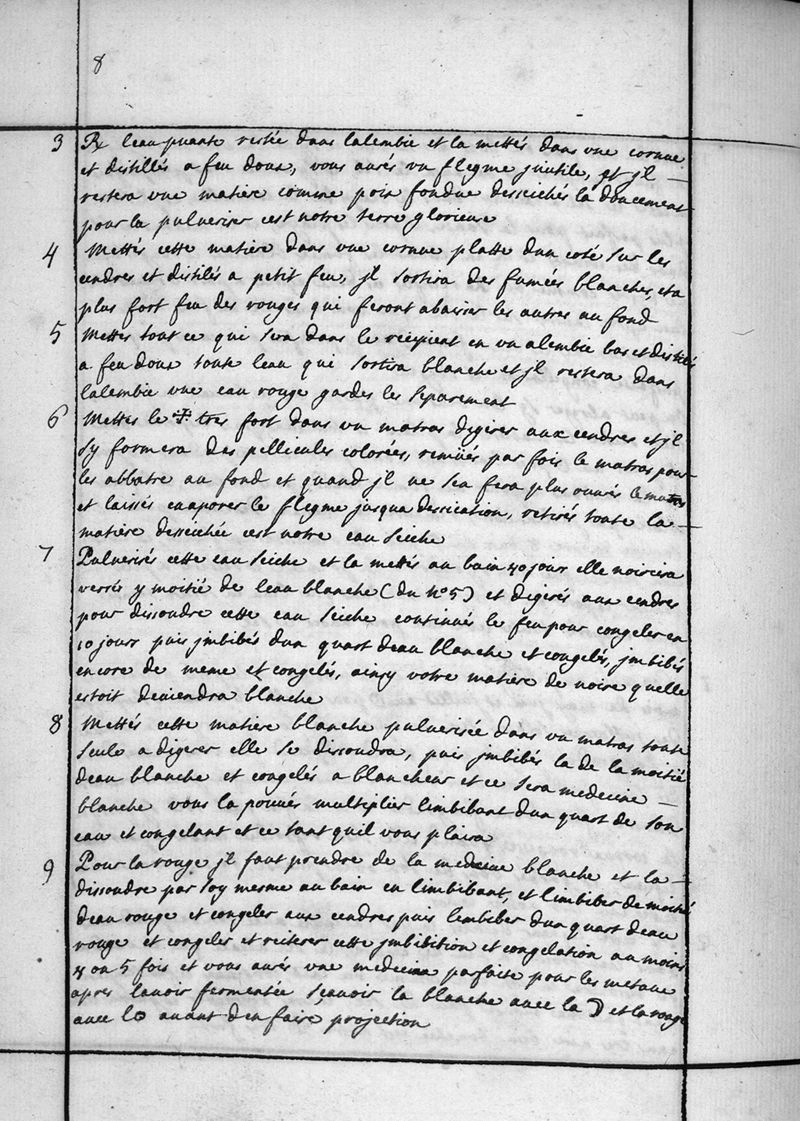 8
3 ℞ leau puante restée dans lalembic et la mettés dans une cornue
et distillés a feu doux, vous aurés un flegme jnutile, et jl —
restera une matiere comme poix fondue desseichés la doucement
pour la pulveriser cest notre terre glorieuse
4 Mettés cette matiere dans une cornue platte dun coté sur les
cendres et distilés a petit feu, jl sortira des fumées blanches, et a
plus fort feu des rouges qui feront abaisser les autres au fond
5 Mettes tout ce qui sera dans le recipient en un alembic bas et distilés
a feu doux toute leau qui sortira blanche et jl restera dans
lalembic une eau rouge gardes les separement
6 Mettes le tres fort dans un matras digerer aux cendres et jl
sy formera des pellicules colorées, remüés par fois le matras pour
les abbatre au fond et quand jl ne sen fera plus ouvrés le matras
et laissés evaporer le flegme jusqua dessication, retirés toute la —
matiere desséichée cest notre eau seiche
7 Pulverisés cette eau seiche et la mettés au bain 40 jours elle noircira
versés y moitié de leau blanche (du n° 5) et digerés aux cendres
pour dissoudre cette eau seiche continués le feu pour congeler en
10 jours puis jmbibés dun quart deau blanche et congelés, jmbibés
encore de meme et congelés, ainsy votre matiere de noire quelle
estoit deviendra blanche
8 Mettés cette matiere blanche pulverisée dans un matras toute
seule a digerer elle se dissoudra, puis jmbibés la de la moitié
deau blanche et congelés a blancheur et ce sera medecine —
blanche vous la pouvés multiplier limbibant dun quart de son
eau et congelant et ce tant quil vous plaira
9 Pour la rouge jl faut prendre de la medecine blanche et la —
dissoudre par soy mesme au bain en limbibant, et limbiber de moitié
deau rouge et congeler aux cendres puis lembiber dun quart deau
rouge et congeler et reiterer cette jmbibition et congelation au moins
4 ou 5 fois et vous aurés une medecine parfaite pour les metaux
apres lavoir fermentée sçavoir la blanche avec la ☽ et la rouge
avec l☉ avant den faire projection